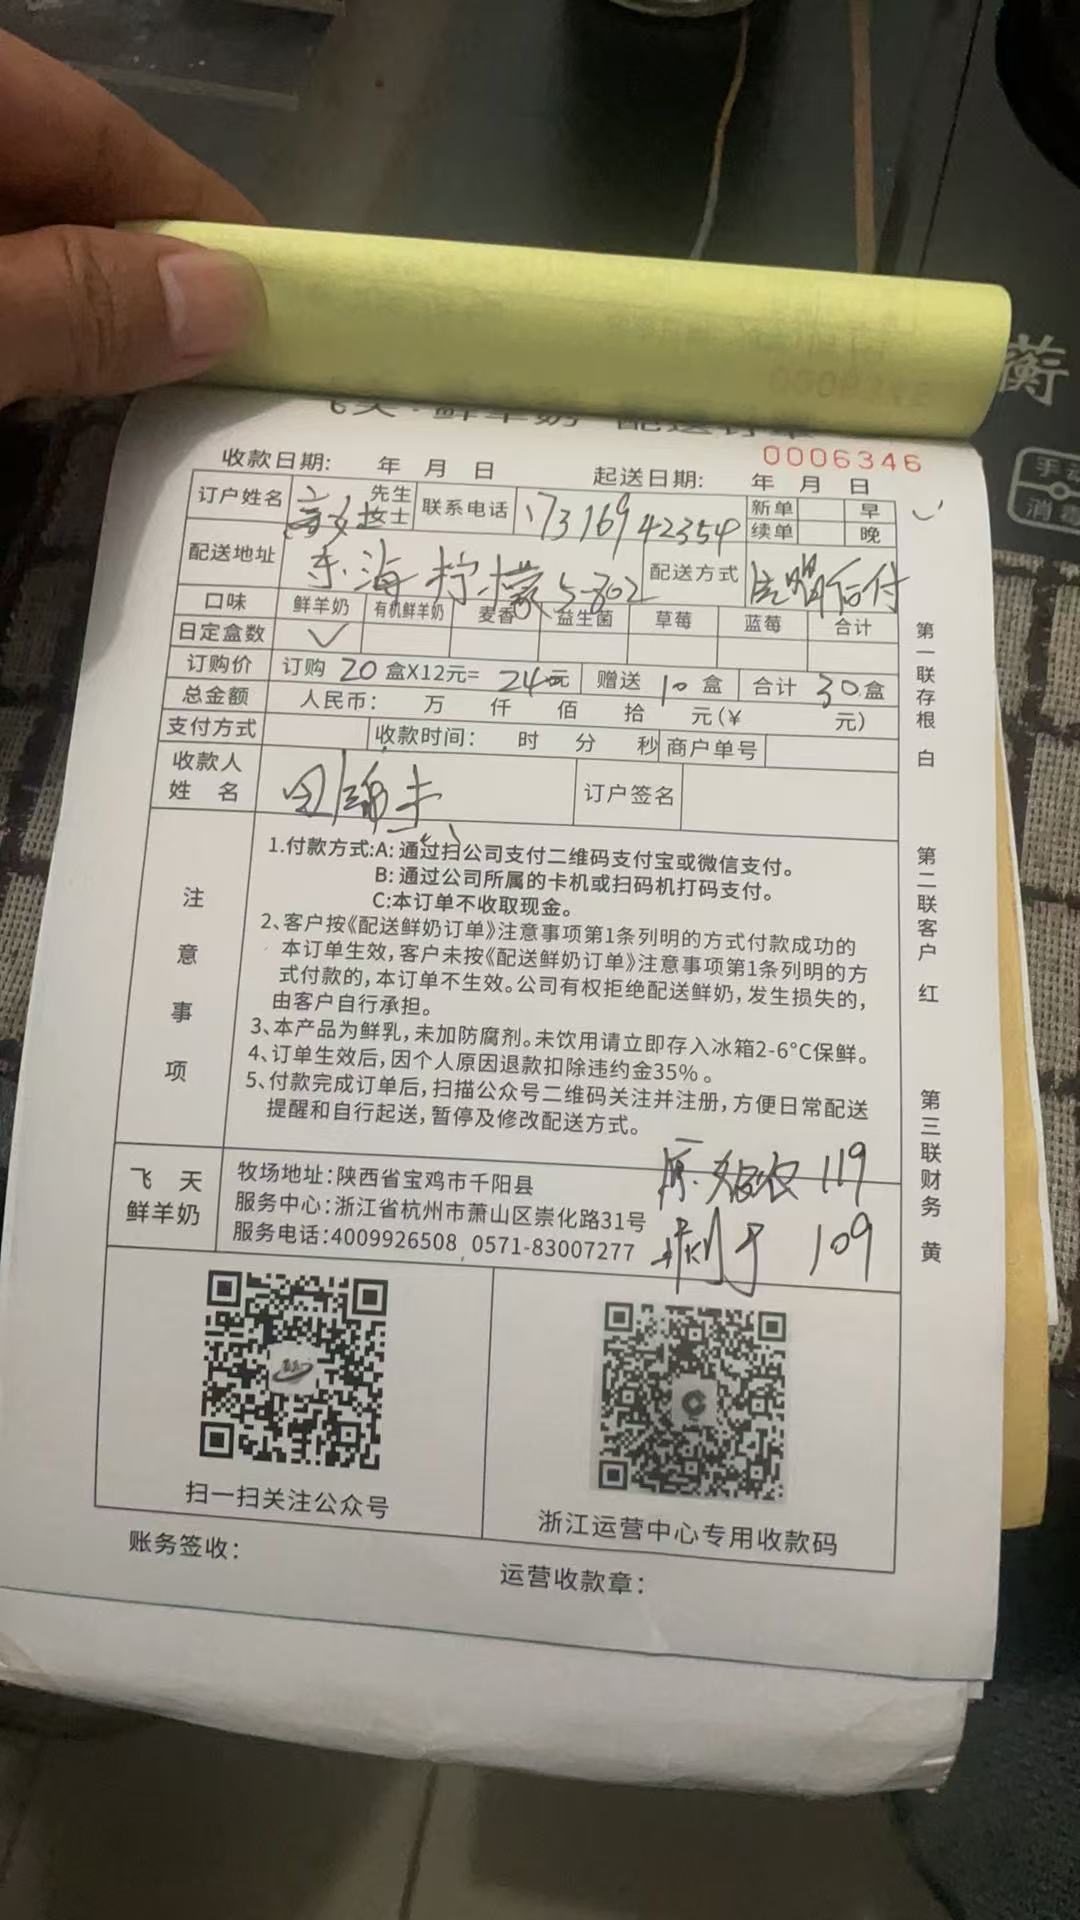 飞天·鲜羊奶 配送订单
0006346
收款日期: 年 月 日 起送日期: 年 月 日
订户姓名 先生 女士 联系电话 17316942354 新单 早
续单 晚
配送地址 东海柠檬 5-802 配送方式 先喝后付
口味 鲜羊奶 有机鲜羊奶 麦香 益生菌 草莓 蓝莓 合计
日定盒数 ✓
订购价 订购 20 盒X12元= 24元 赠送 10 盒 合计 30 盒
总金额 人民币: 万 仟 佰 拾 元(¥ 元)
支付方式 收款时间: 时 分 秒 商户单号
收款人
姓 名 订户签名
注意事项
1.付款方式:A: 通过扫公司支付二维码支付宝或微信支付。
B: 通过公司所属的卡机或扫码机打码支付。
C:本订单不收取现金。
2、客户按《配送鲜奶订单》注意事项第1条列明的方式付款成功的
本订单生效,客户未按《配送鲜奶订单》注意事项第1条列明的方
式付款的,本订单不生效。公司有权拒绝配送鲜奶,发生损失的,
由客户自行承担。
3、本产品为鲜乳,未加防腐剂。未饮用请立即存入冰箱2-6°C保鲜。
4、订单生效后,因个人原因退款扣除违约金35%。
5、付款完成订单后,扫描公众号二维码关注并注册,方便日常配送
提醒和自行起送,暂停及修改配送方式。
119
109
飞 天
鲜羊奶
牧场地址:陕西省宝鸡市千阳县
服务中心:浙江省杭州市萧山区崇化路31号
服务电话:4009926508 0571-83007277
扫一扫关注公众号
浙江运营中心专用收款码
账务签收:
运营收款章:
第一联存根 白
第二联客户 红
第三联财务 黄
衡
手动
消毒